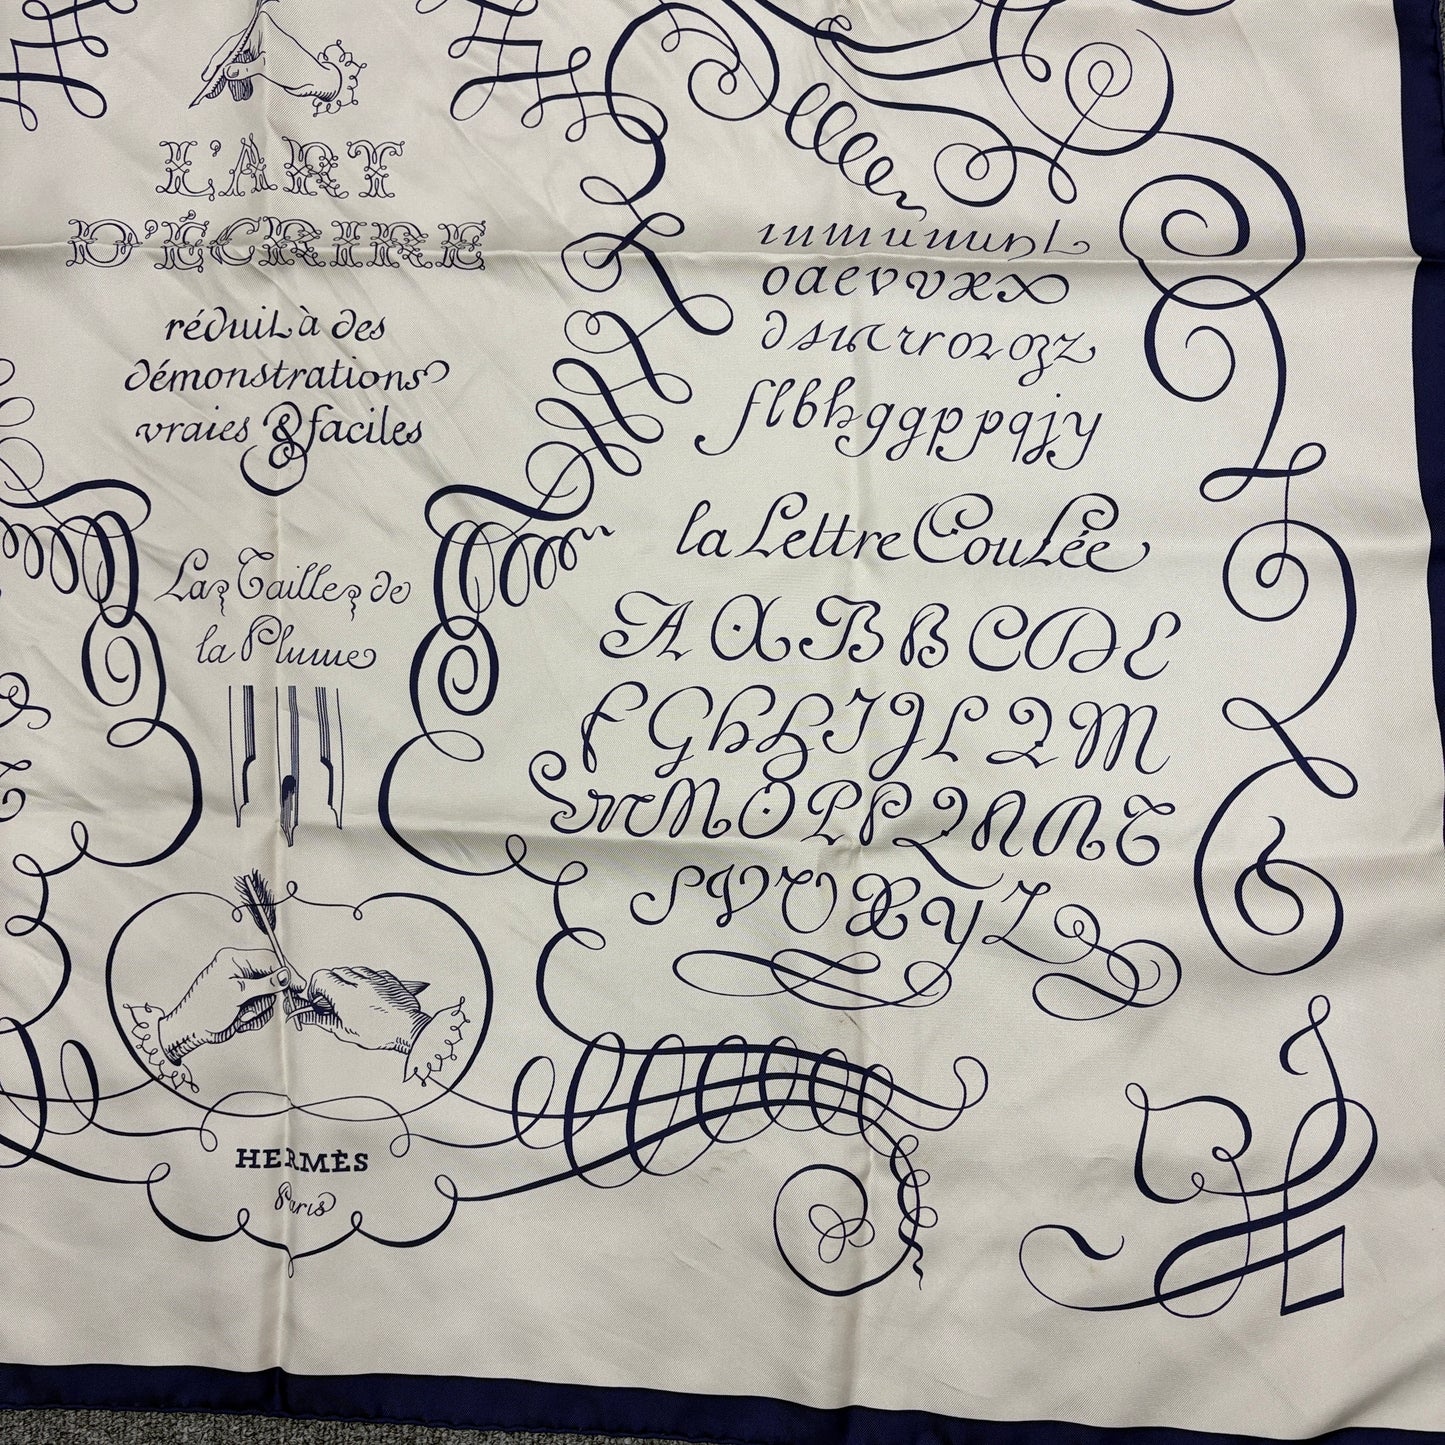 L'ART
D'ÉCRIRE
réduit à des
démonstrations
vraies & faciles
La Taille de
la Plume
HERMÈS
Paris
flbhggppqjy
la Lettre Coulée
A A B B C D E
F G h H I J L L M
M N O P P Q R R T
S V V X Y Z